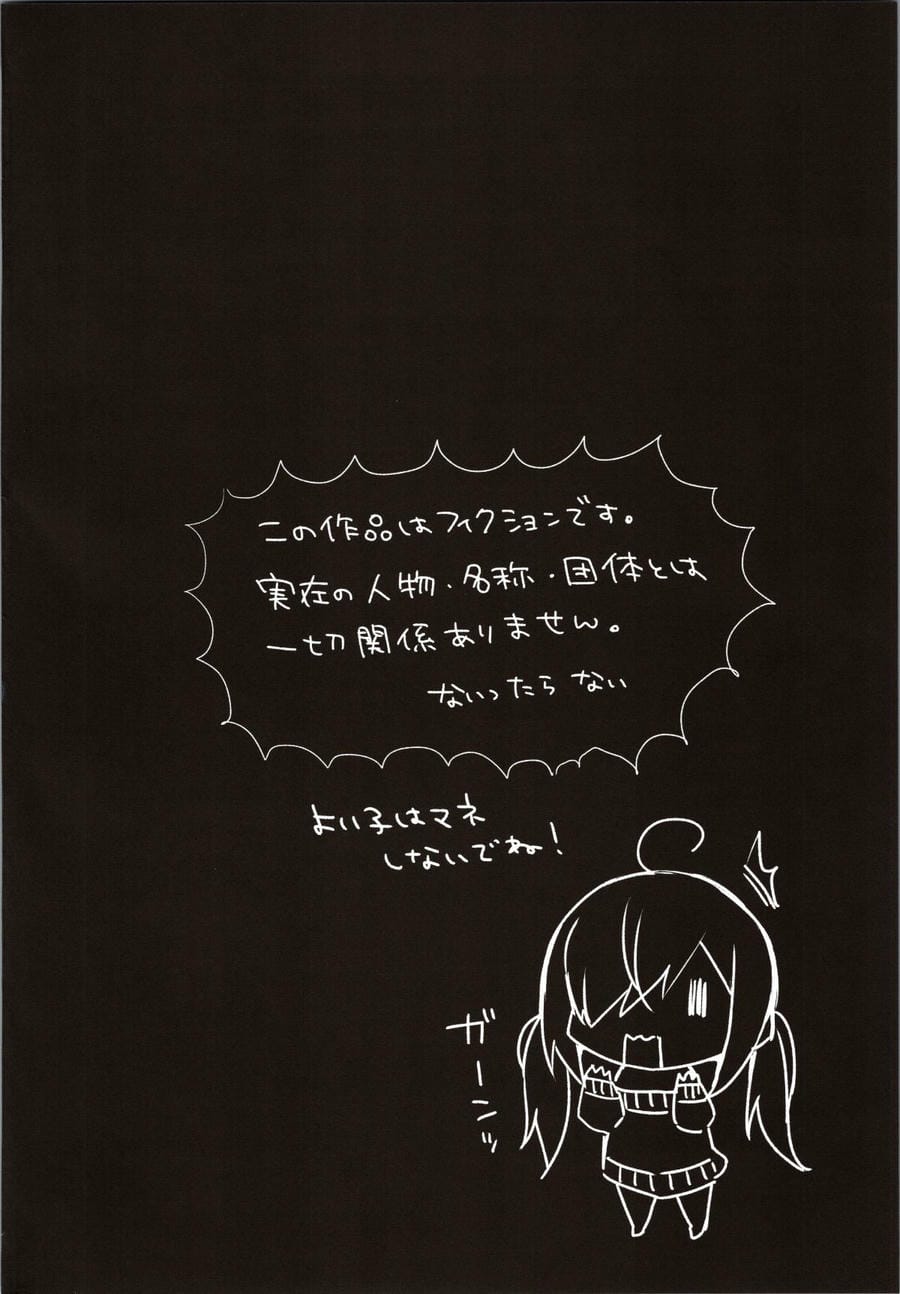 この作品はフィクションです。
実在の人物・名称・団体とは
一切関係ありません。
ないったら ない
よい子はマネ
しないでね!
ガーンッ